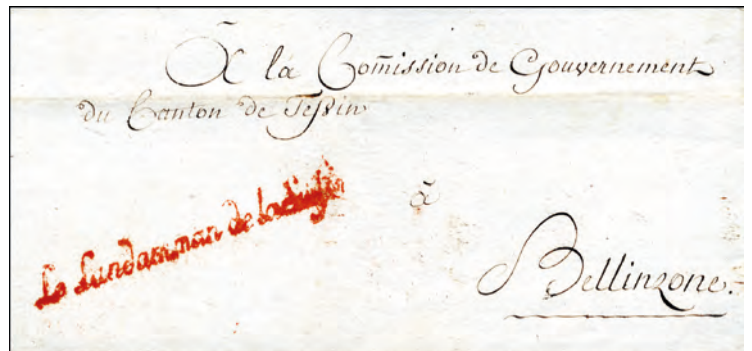 À la Com̃ission de Gouvernement
du Canton de Tessin
Le Landamman de la Suisse
à
Bellinzone.